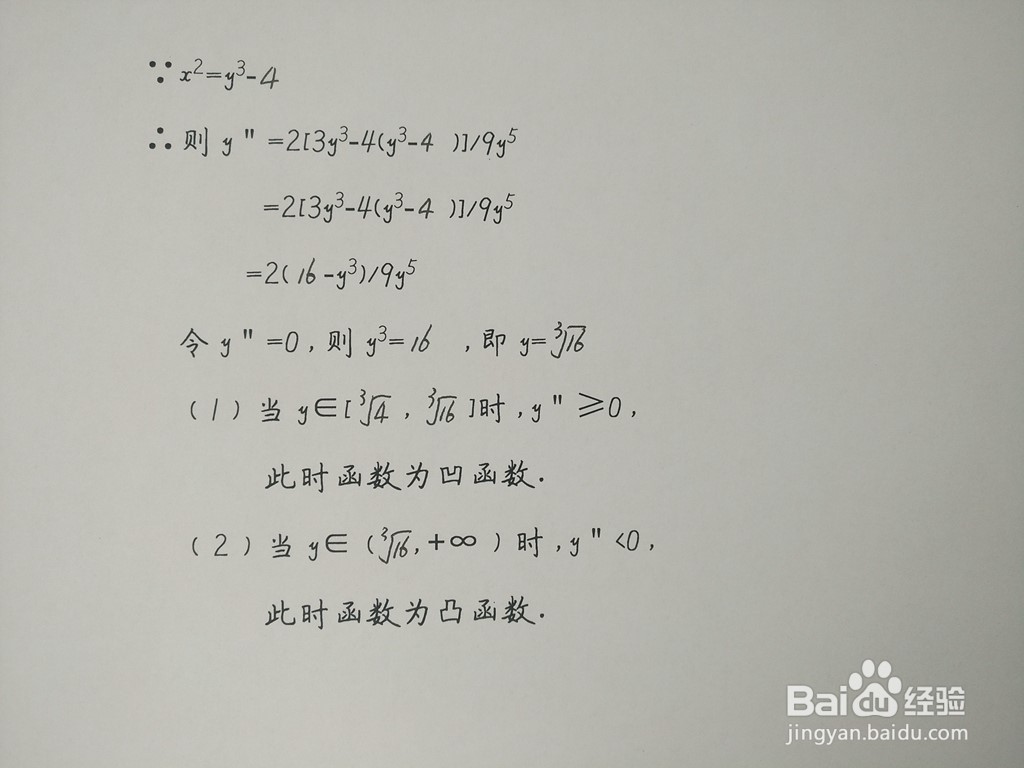 ∵ x²=y³-4
∴ 则 y" =2[3y³-4(y³-4 )]/9y⁵
=2[3y³-4(y³-4 )]/9y⁵
=2(16-y³)/9y⁵
令 y" =0,则 y³=16 ,即 y=³√16
(1)当 y∈[³√4 , ³√16 ]时,y" ≥0,
此时函数为凹函数.
(2)当 y∈ (³√16,+∞ )时,y" <0,
此时函数为凸函数.
Baidu经验
jingyan.baidu.com